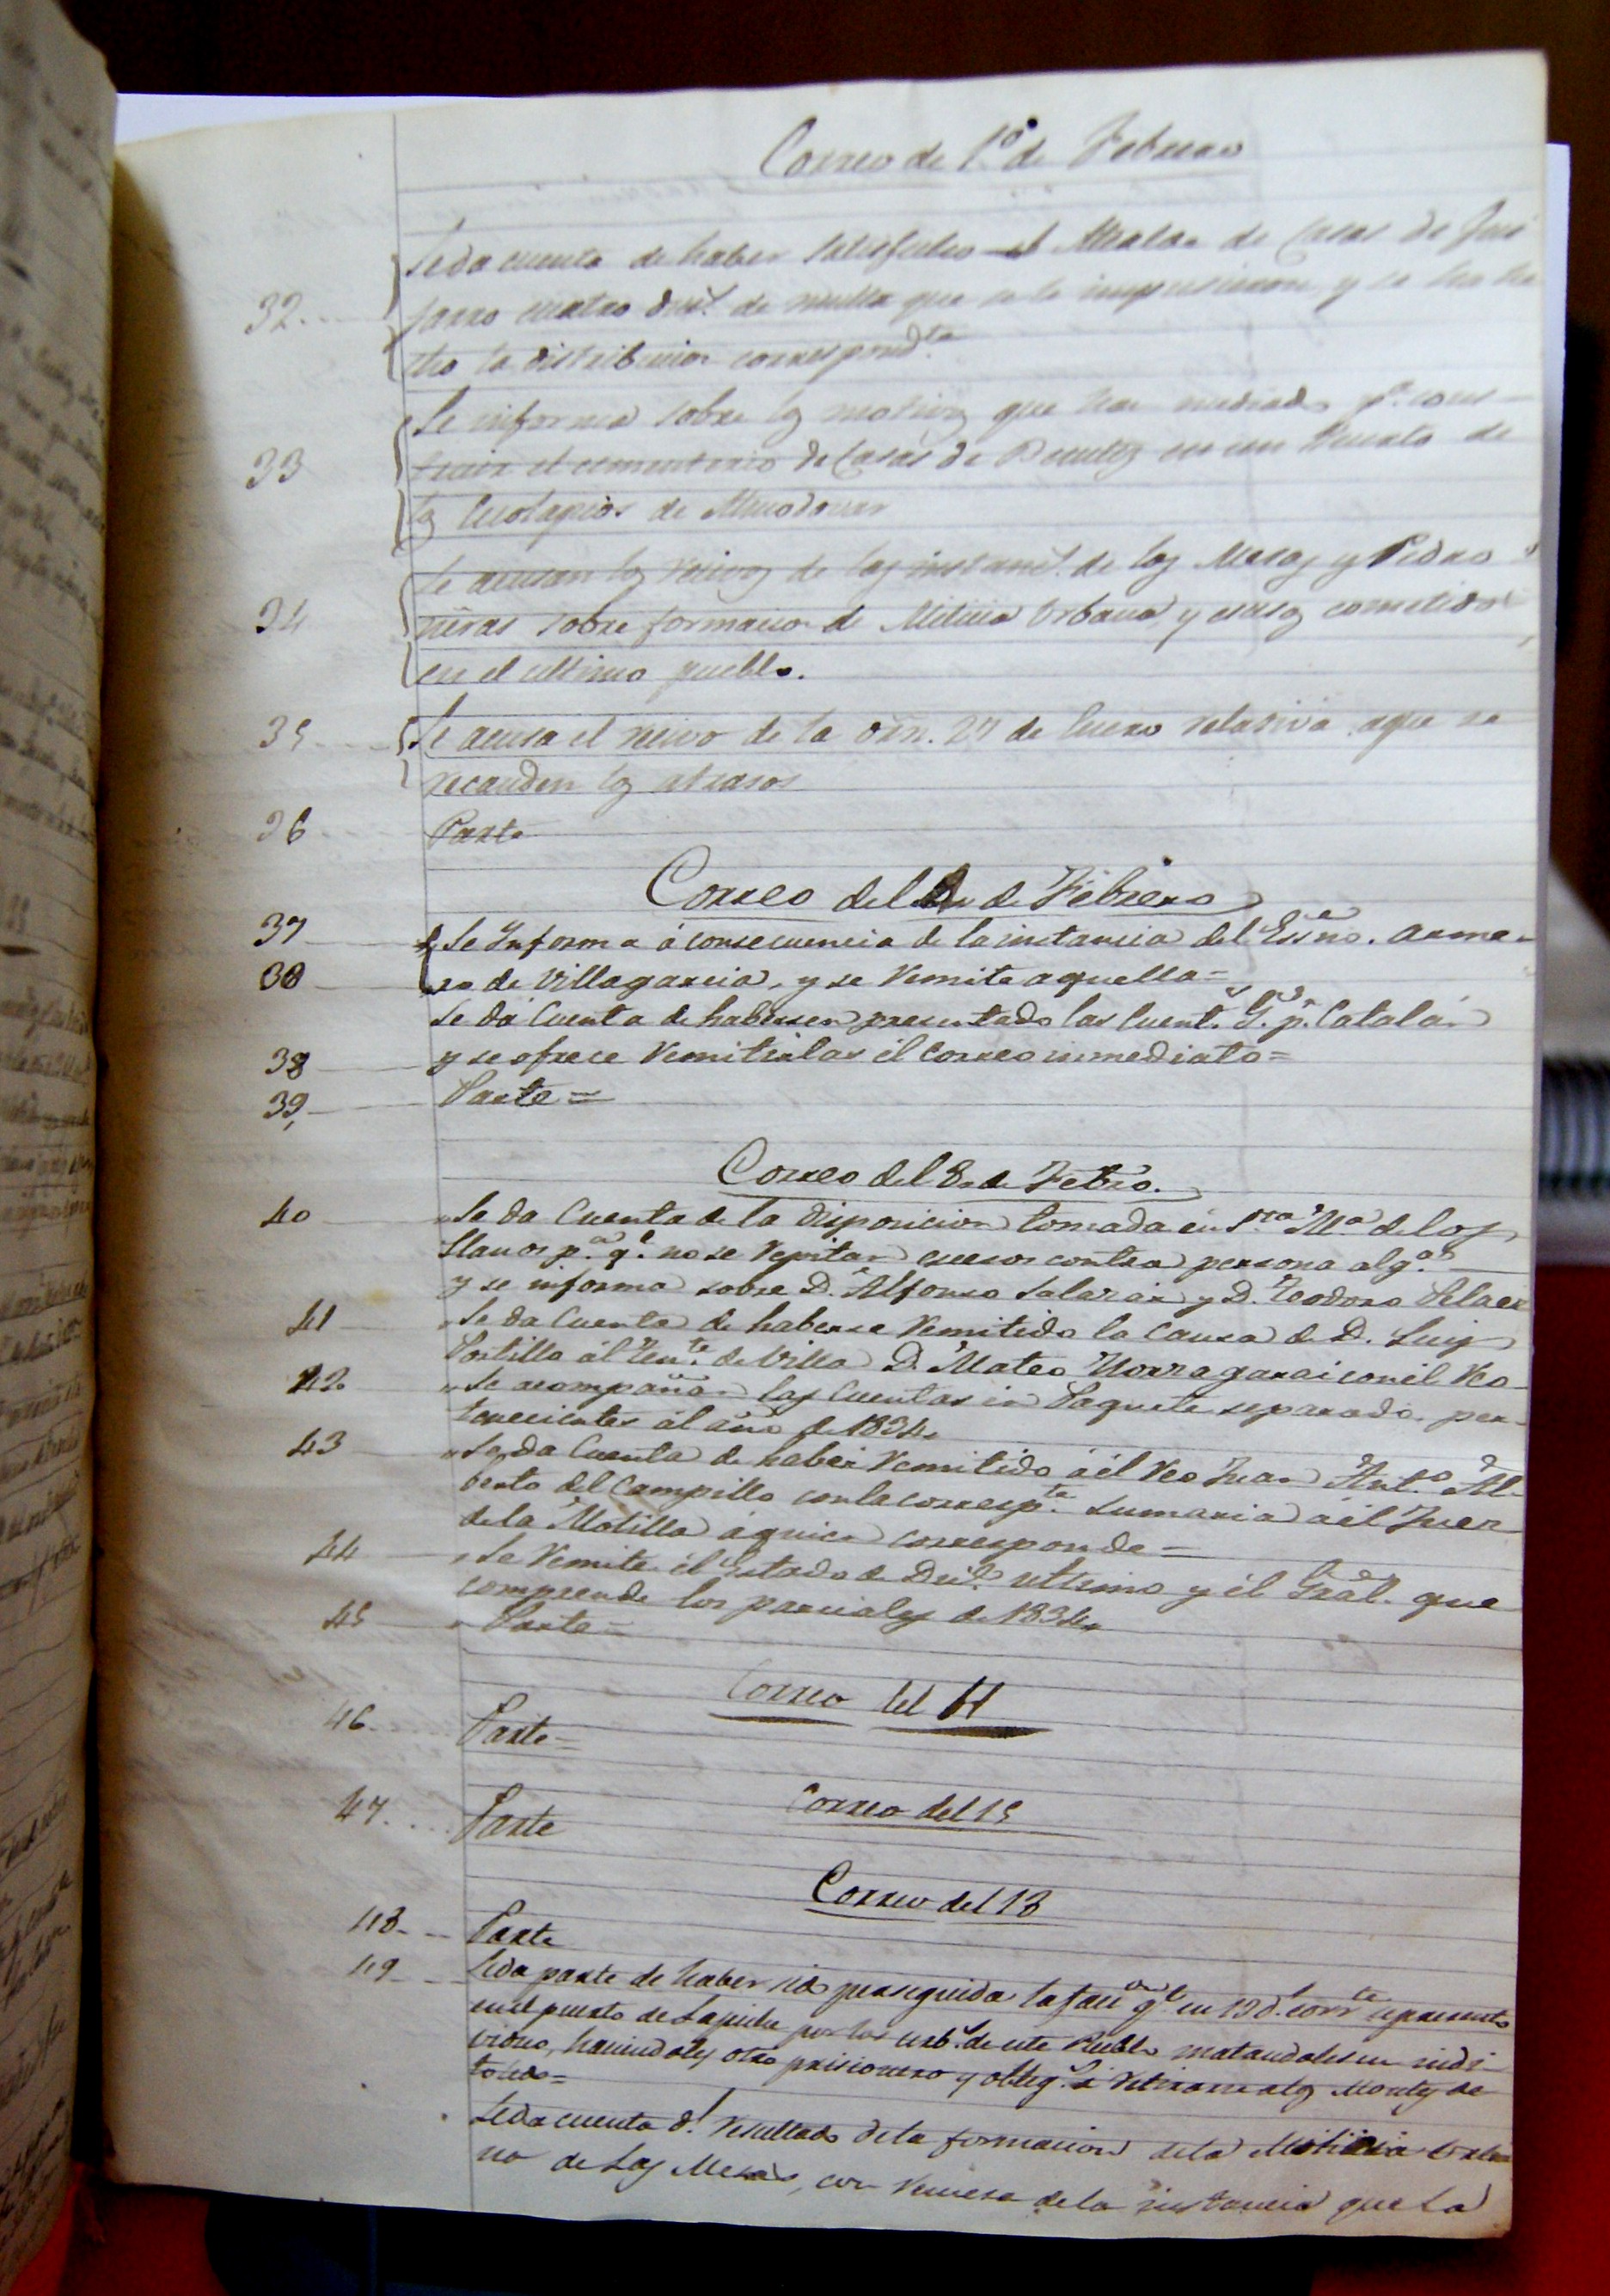 Correo de 1.º de Febrero
Se da cuenta de haber satisfecho el Alcalde de Casas de Gui
32.... jarro cuatro duc.s de multa que se le impusieron y se ha he
cho la distribucion correspond.te
Se informa sobre los motivos que han mediado p.a cons-
33 truir el cementerio de Casas de Benitez en un Puerto de
los de Almodovar
Se acusan los recivos de las instanc.s de las Mesas y Pedro
34 ñeras sobre formacion de Milicia Urbana y escesos cometidos
en el ultimo pueblo.
35.... Se acusa el recivo de la orn. 27 de Enero relativa aque se
recauden los atrasos
36 Parte
Correo del de Febrero
37 Se Informa á consecuencia de la instancia del Essno. Arme-
38 ro de Villagarcia, y se Remite aquella=
Se dá Cuenta de habersen presentado las Cuent.s G. p.r Catalán
38 y se ofrece Remitirlas él Correo inmediato=
39, Parte=
Correo del 8 de Febro.
40 Se da Cuenta de la disposicion tomada en S.ta M.a de los
Llanos p.a q.e no se Repitan escesos contra persona alg.a
y se informa sobre D. Alfonso Salazar y D. Teodoro Pelaez
41 Se da Cuenta de haberse Remitido la Causa de D. Luis
Portillo ál Ten.te de Villa D. Mateo con él Reo
42 Se acompañan las Cuentas en Paquete separado per-
tenecientes ál año de 1834.
43 Se da Cuenta de haber Remitido á él Reo Juan Ant.o Al-
berto del Campillo con la corresp.te Sumaria á él Juez
de la Motilla á quien Corresponde=
44 Se Remite él Estado de Dic.e ultimo y él Gral. que
comprende los parciales de 1834.
45 Parte=
Correo del 11
46. Parte=
Correo del 15
47... Parte
Correo del 18
48... Parte
49.. Se da parte de haber sido perseguida la facc.on q.e en 13 d.l corr.te se presentó
en el puerto de Lapiche por los urb.s de este Pueblo matandoles un indi-
viduo, haciendoles otro prisionero y oblig.s á Retirarse alos Montes de
toledo=
Se da cuenta d.l Resultado de la formacion de la Milicia Urba
na de Las Mesas, con Remesa de la instancia que la